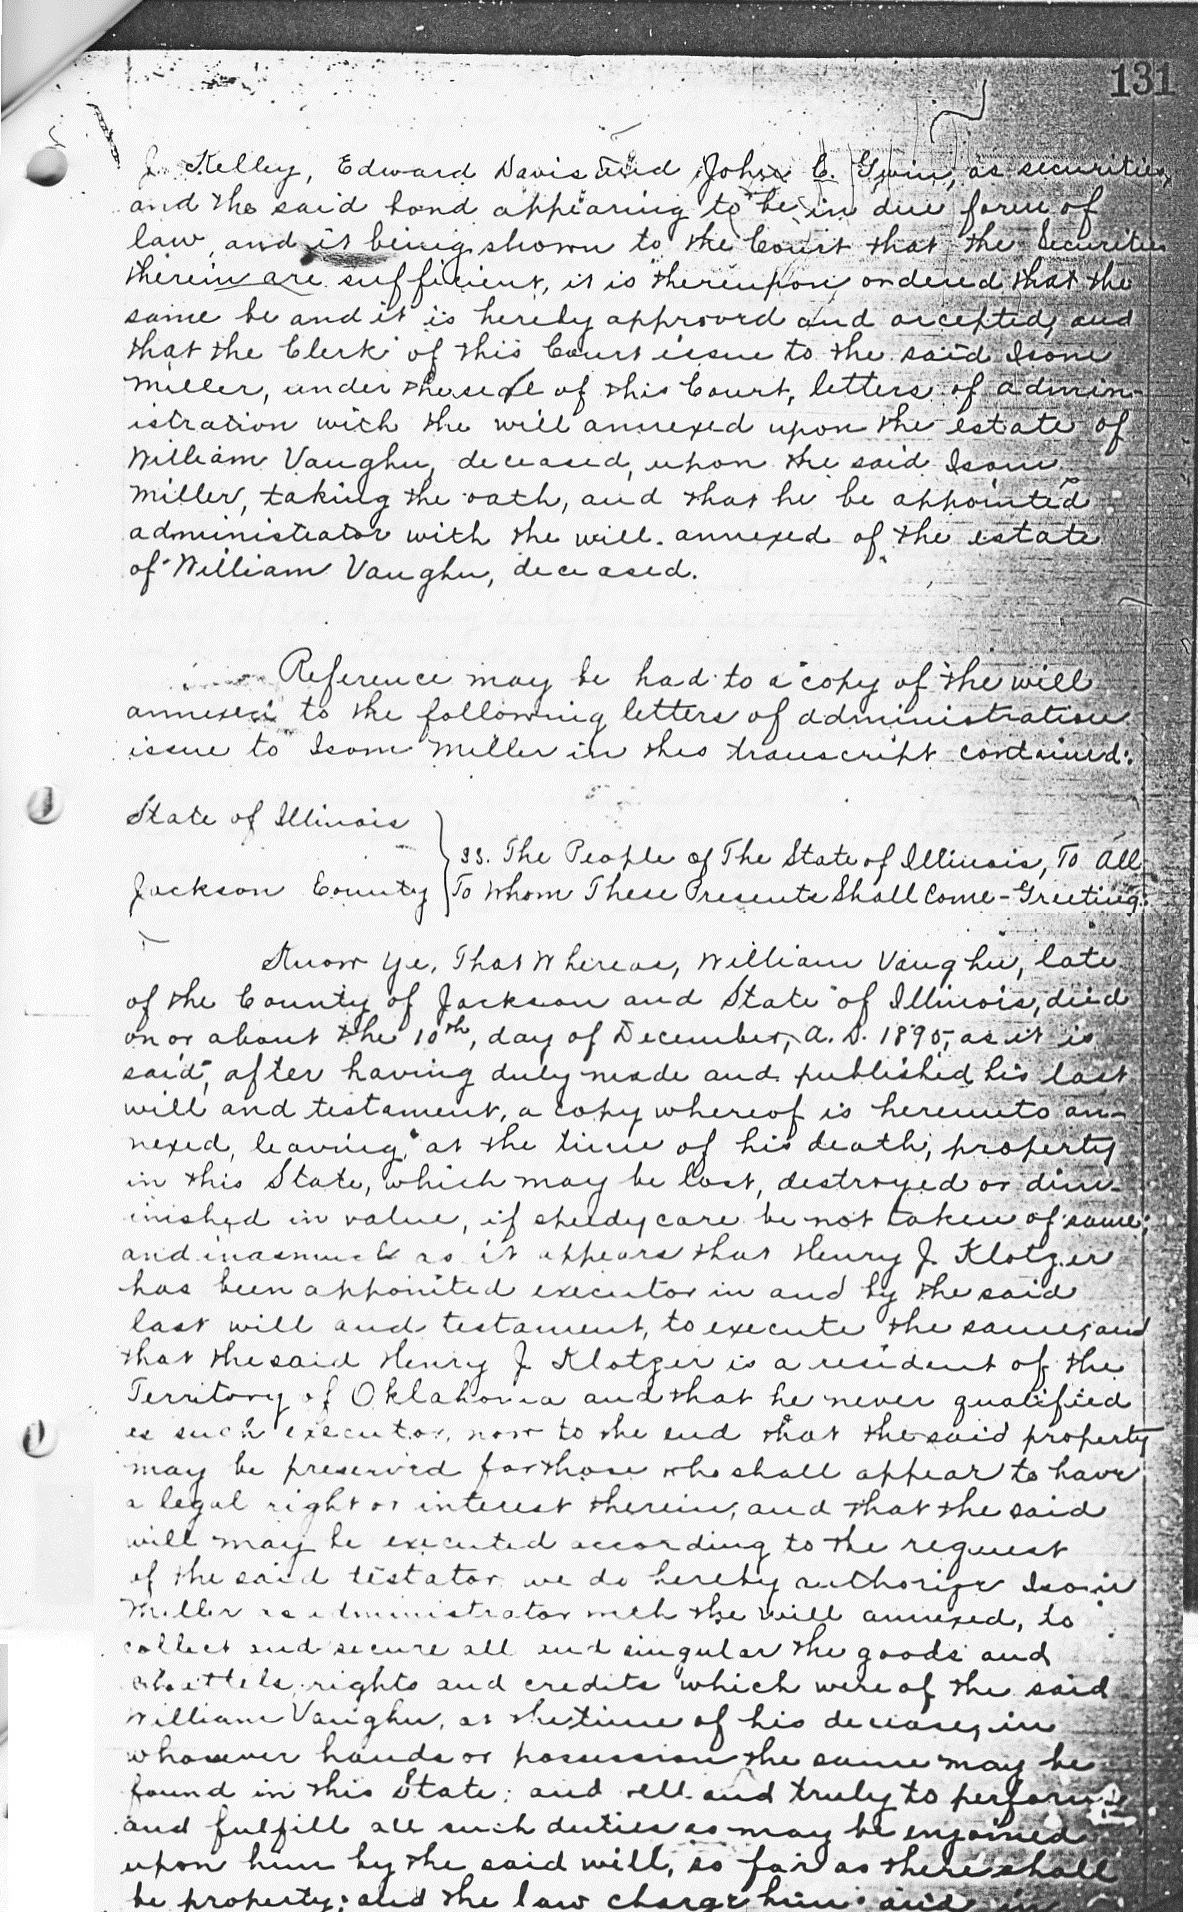 131
J. Kelley, Edward Davis and John E. Gwin, as securities,
and the said bond appearing to be in due form of
law, and it being shown to the Court that the Securities
therein are sufficient, it is thereupon ordered that the
same be and it is hereby approved and accepted, and
that the Clerk of this Court issue to the said Isom
Miller, under the seal of this Court, letters of admin-
istration with the will annexed upon the estate of
William Vaughn, deceased, upon the said Isom
Miller, taking the oath, and that he be appointed
administrator with the will annexed of the estate
of William Vaughn, deceased.
Reference may be had to a copy of the will
annexed to the following letters of administration
issue to Isom Miller in this transcript contained:
State of Illinois
Jackson County
ss. The People of The State of Illinois, To All
To Whom These Presents Shall Come - Greeting:
Know Ye, That Whereas, William Vaughn, late
of the County of Jackson and State of Illinois, died
on or about the 10th, day of December, A. D. 1895, as it is
said, after having duly made and published his last
will and testament, a copy whereof is hereunto an-
nexed, leaving, at the time of his death, property
in this State, which may be lost, destroyed or dim-
inished in value, if speedy care be not taken of same;
and inasmuch as it appears that Henry J. Klotzer
has been appointed executor in and by the said
last will and testament, to execute the same, and
that the said Henry J. Klotzer is a resident of the
Territory of Oklahoma and that he never qualified
as such executor, now to the end that the said property
may be preserved for those who shall appear to have
a legal right or interest therein, and that the said
will may be executed according to the request
of the said testator we do hereby authorize Isom
Miller as administrator with the will annexed, to
collect and secure all and singular the goods and
chattels, rights and credits which were of the said
William Vaughn, at the time of his decease, in
whosever hands or possession the same may be
found in this State; and well and truly to perform
and fulfill all such duties as may be enjoined
upon him by the said will, so far as there shall
be property; and the law charge him; and in